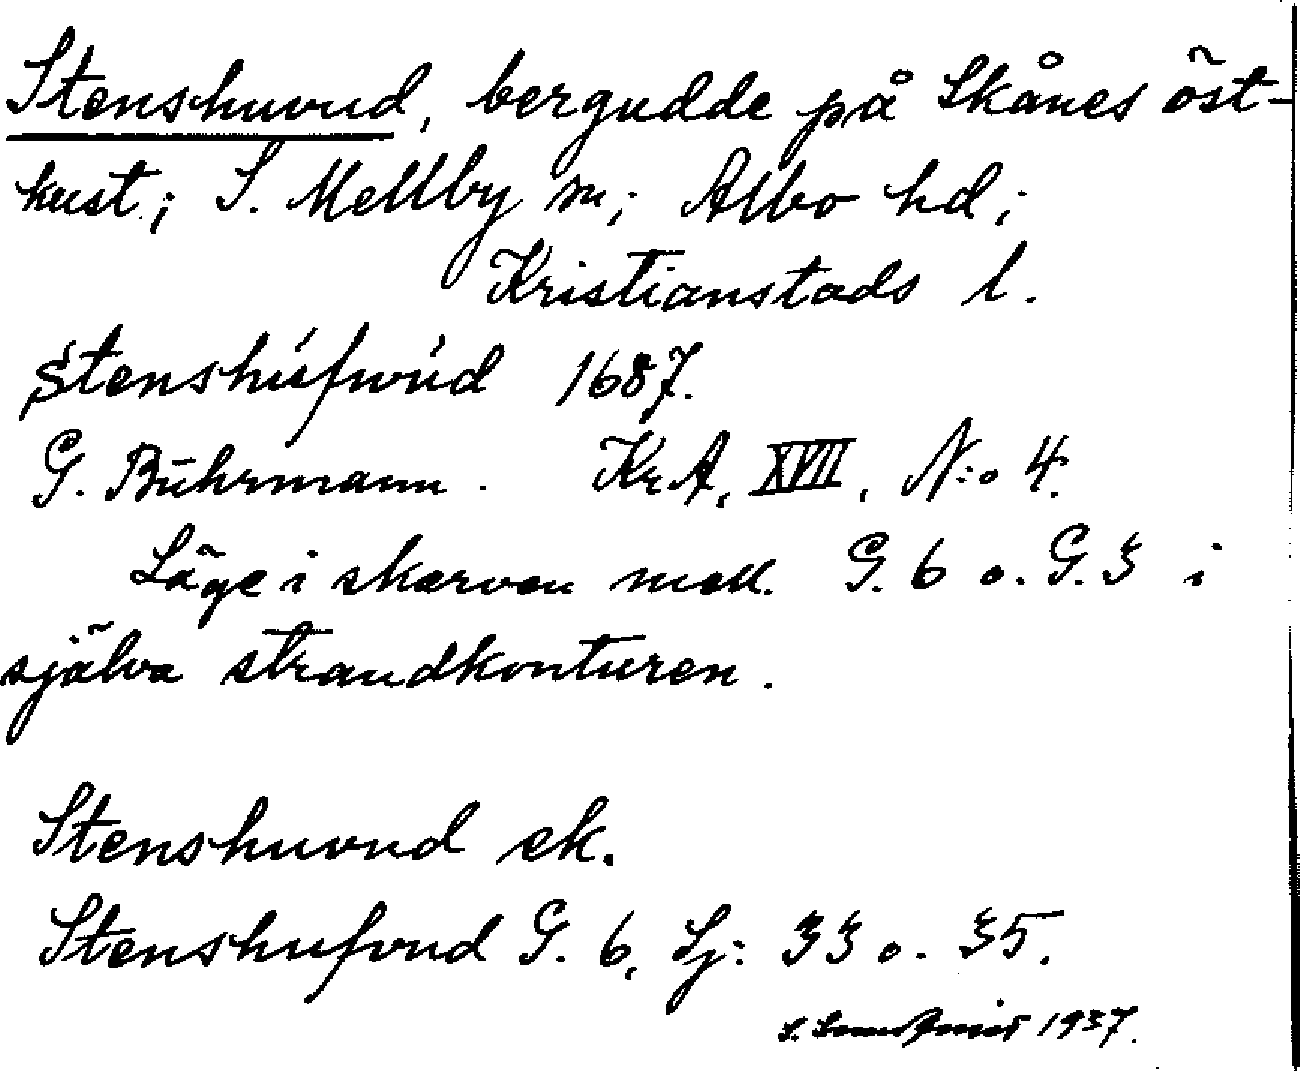 Stenshuvud, bergudde på Skånes öst-
kust; S. Mellby sn; Albo hd;
Kristianstads l.
Stenshúfwúd 1687.
G. Buhrmann. KrA, XVII, N:o 4.
Läge i skarven mell. G. 6 o. G. 3 i
själva strandkonturen.
Stenshuvud ek.
Stenshufvud G. 6, Sj: 33 o. 35.
1937.